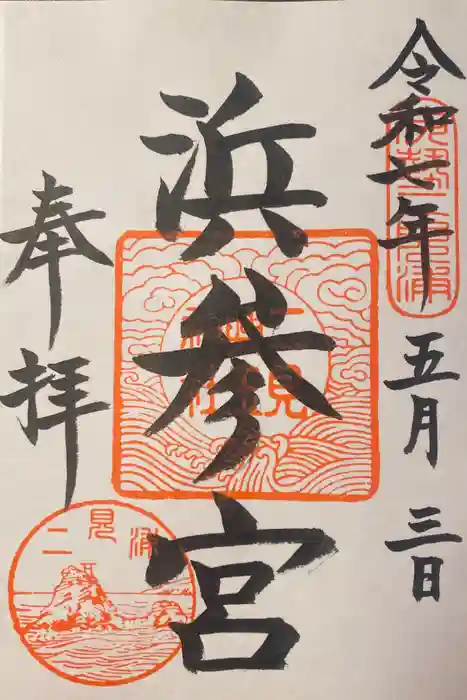 令和七年五月三日
伊勢二見浦
浜参宮
二見興玉神社
奉拝
二見浦